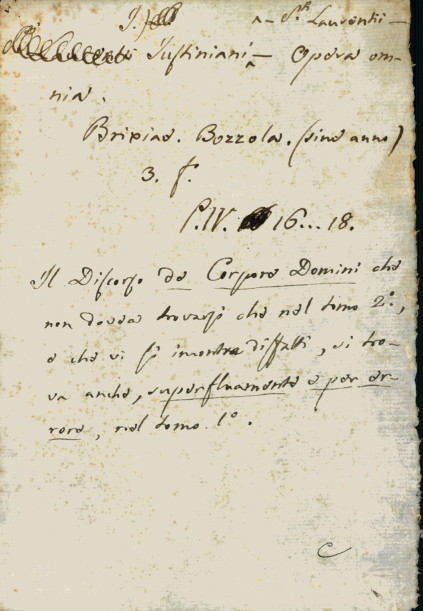 a - S.ti Laurentii -
Justiniani - Opera om-
nia.
Brixiae. Bozzola. (sine anno)
3. f.
P.IV. 16...18.
Il Discorso de Corpore Domini che
non dovea trovarsi che nel tomo 2º,
e che vi si incontra diffatti, si tro-
va anche, superfluamente e per er-
rore, nel tomo 1º.
C